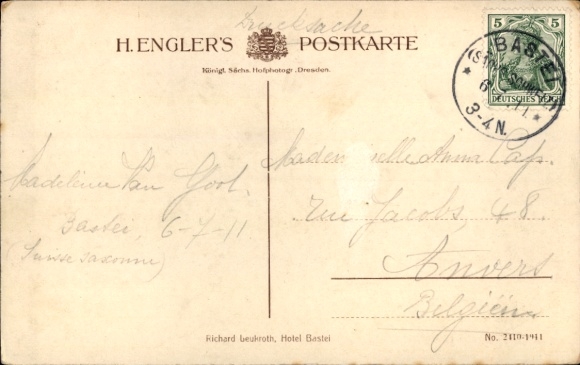 Drucksache
H. ENGLER'S POSTKARTE
Königl. Sächs. Hofphotogr., Dresden.
5 5
DEUTSCHES REICH
BASTEI
3-4 N.
Mademoiselle Anna Cap.
rue Jacobs, 48.
Anvers
Belgien
Madeleine Van Gool.
Bastei, 6-7-11
(Suisse saxonne)
Richard Leukroth, Hotel Bastei
No. 2410-1911